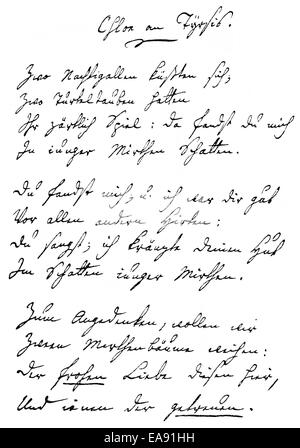 Chloe an Tyrsis.
Zwo Nachtigallen küßten sich;
Zwo Turteltauben hatten
Ihr zärtlich Spiel: da fandst du mich
In junger Mirthen Schatten.
Du fandst mich, u. ich war dir gut
Vor allen andern Hirten:
Du sangst; ich kränzte deinen Hut
Im Schatten junger Mirthen.
Zum Angedenken, wollen wir
Zween Myrthenbäume weihen:
Der frohen Liebe diesen hier,
Und jenen der getreuen.
a alamy stock photo
EA91HH
www.alamy.com